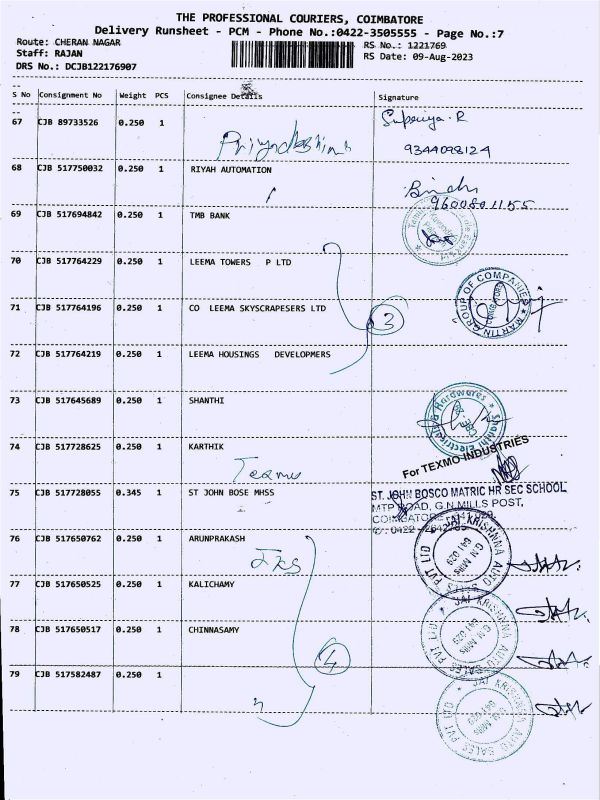 THE PROFESSIONAL COURIERS, COIMBATORE
Delivery Runsheet - PCM - Phone No.:0422-3505555 - Page No.:7
Route: CHERAN NAGAR
RS No.: 1221769
Staff: RAJAN
RS Date: 09-Aug-2023
DRS No.: DCJB122176907
S No Consignment No Weight PCS Consignee Details Signature
67 CJB 89733526 0.250 1
Supriya.R
9344098124
68 CJB 517750032 0.250 1 RIYAH AUTOMATION
9600801155
69 CJB 517694842 0.250 1 TMB BANK
70 CJB 517764229 0.250 1 LEEMA TOWERS P LTD
MARTIN GROUP OF COMPANIES
71 CJB 517764196 0.250 1 CO LEEMA SKYSCRAPESERS LTD
3
72 CJB 517764219 0.250 1 LEEMA HOUSINGS DEVELOPMERS
73 CJB 517645689 0.250 1 SHANTHI
Shanthi Electricals & Hardwares
74 CJB 517728625 0.250 1 KARTHIK
For TEXMO INDUSTRIES
75 CJB 517728055 0.345 1 ST JOHN BOSE MHSS
ST. JOHN BOSCO MATRIC HR SEC SCHOOL
MTP ROAD, G.N.MILLS POST,
76 CJB 517650762 0.250 1 ARUNPRAKASH
JAI KRISHNNA AUTO SALES PVT LTD
G.N. Mills
641 029
77 CJB 517650525 0.250 1 KALICHAMY
JAI KRISHNNA AUTO SALES PVT LTD
G.N. Mills
641 029
78 CJB 517650517 0.250 1 CHINNASAMY
4
79 CJB 517582487 0.250 1
JAI KRISHNNA AUTO SALES PVT LTD
G.N. Mills
641 029